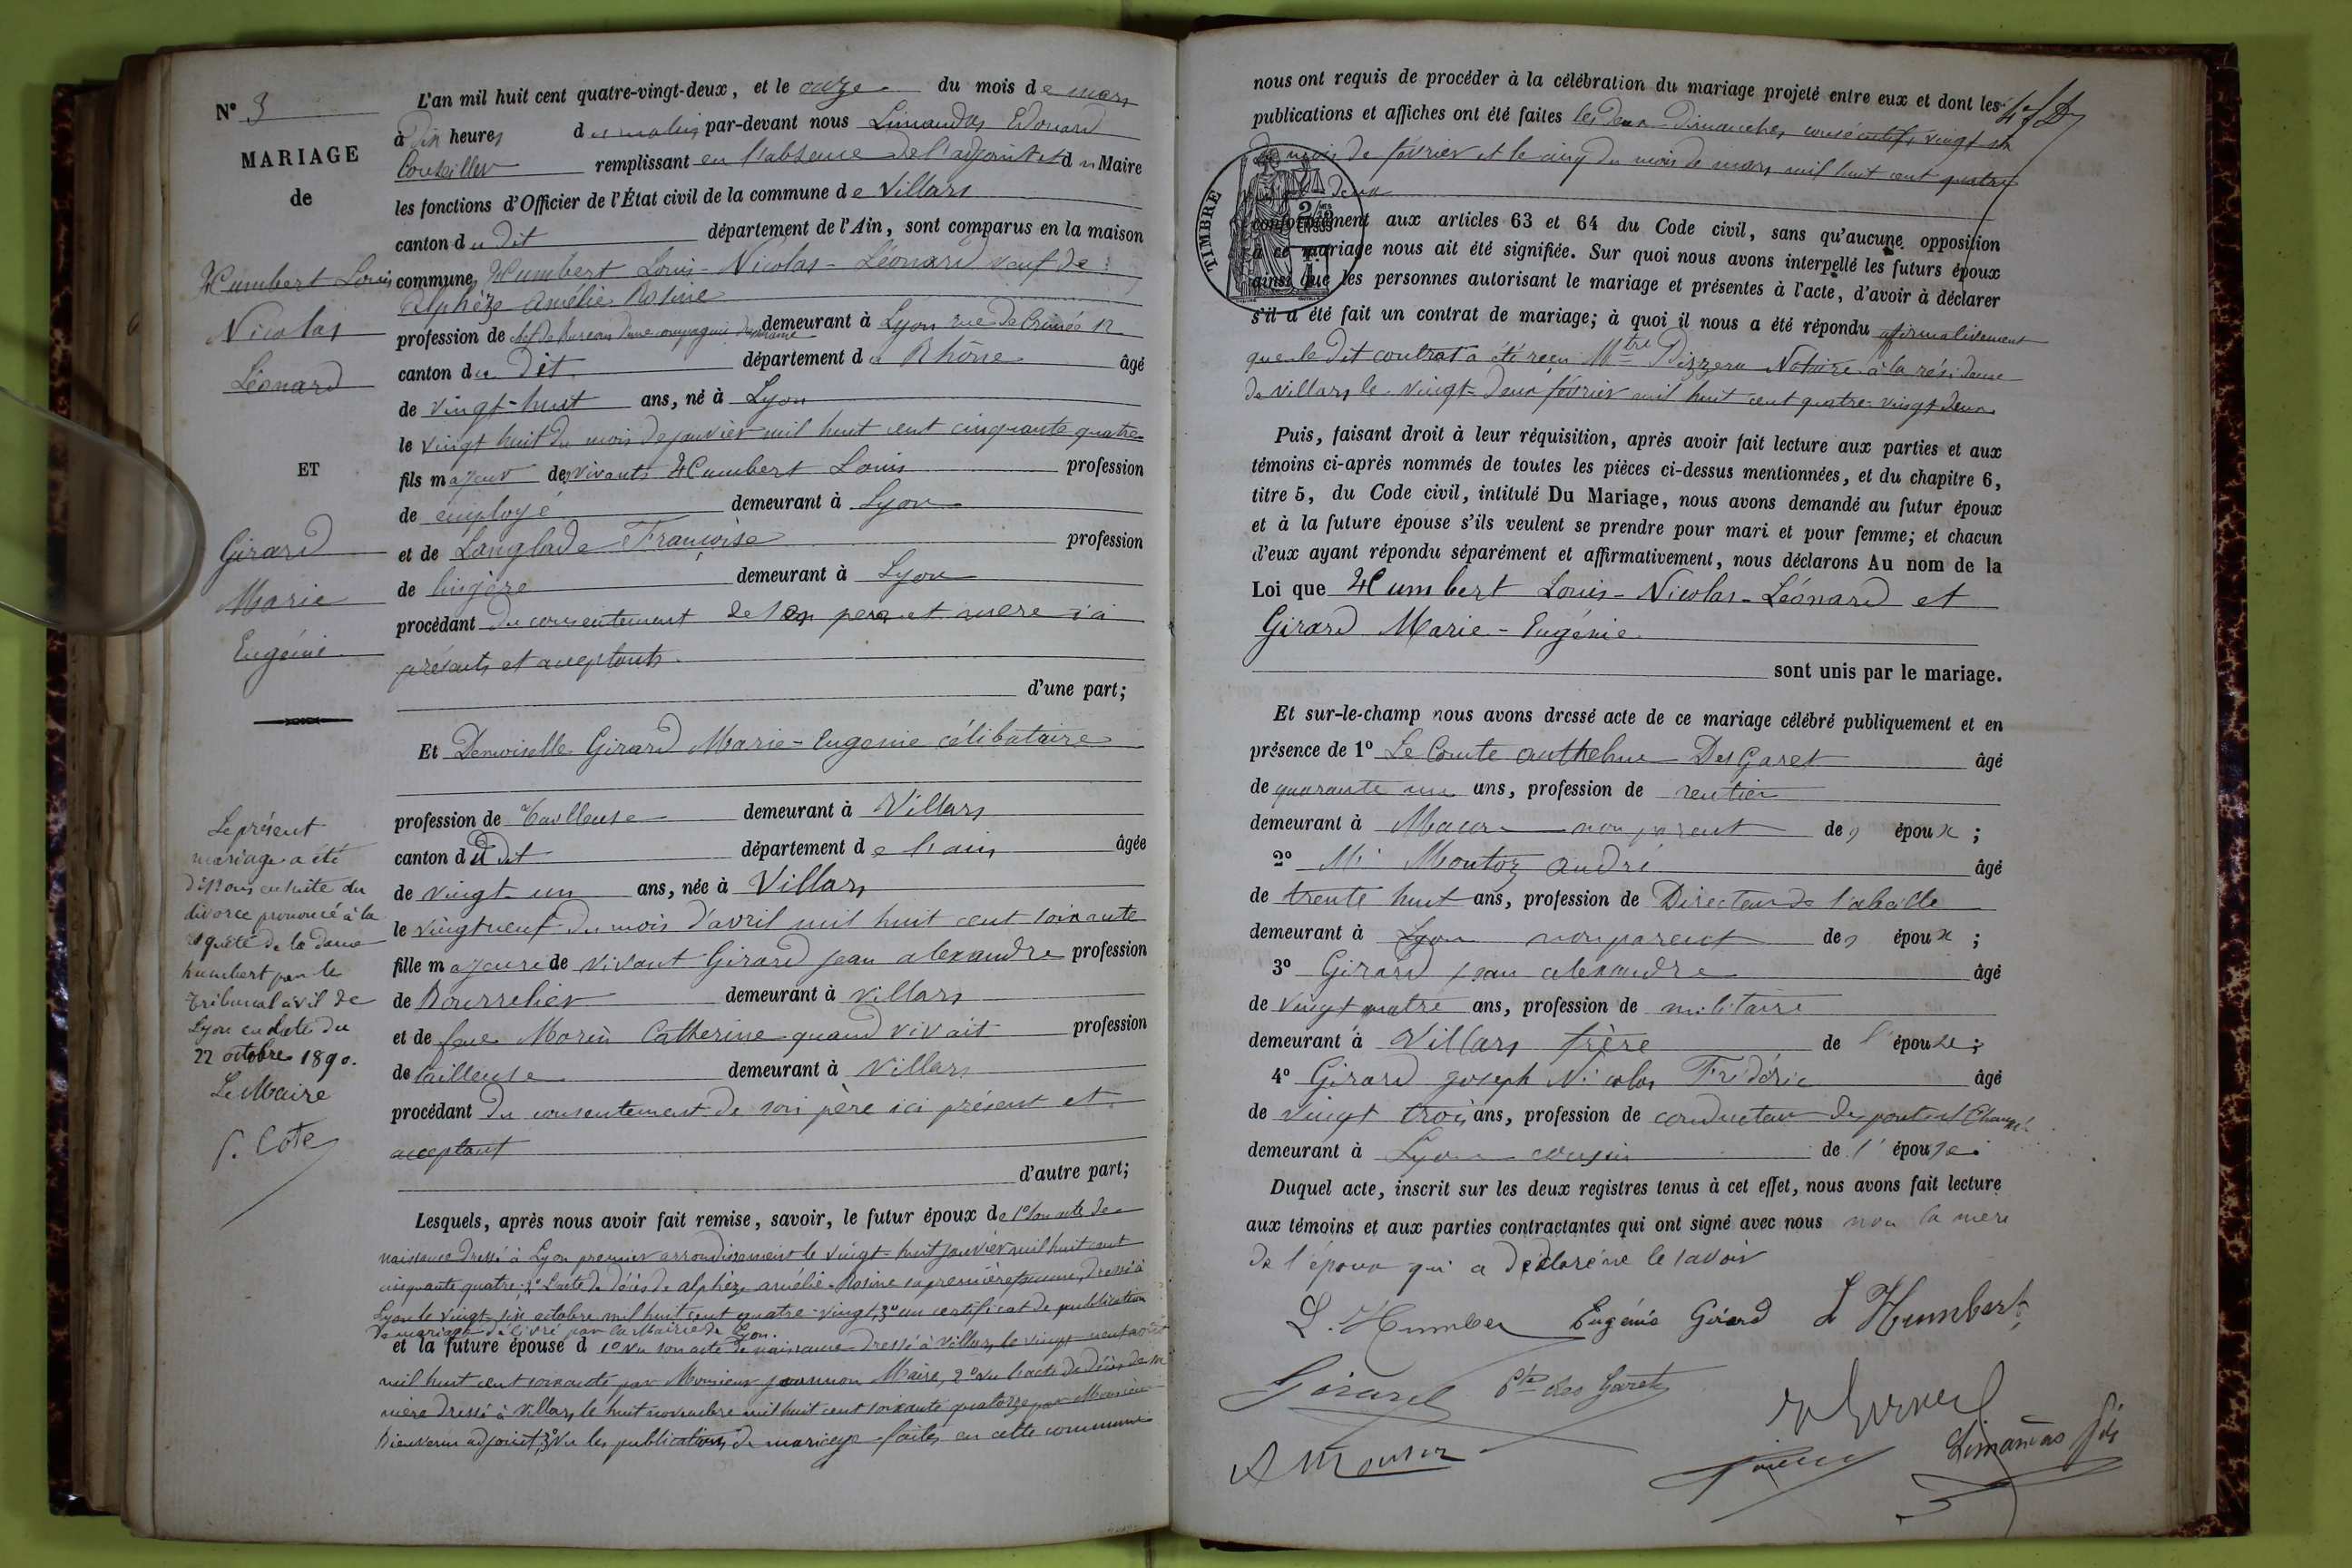 N° 3
MARIAGE
de
Humbert Louis
Nicolas
Léonard
ET
Girard
Marie
Eugénie
Le présent
mariage a été
dissous ensuite du
divorce prononcé à la
requête de la dame
humbert par le
tribunal civil de
Lyon en date du
22 octobre 1890.
Le Maire
P. Cote
L'an mil huit cent quatre-vingt-deux, et le onze du mois de mars
à Dix heures du matin par-devant nous Limandas Edouard
Conseiller remplissant en l'absence de l'adjoint et du Maire
les fonctions d'Officier de l'État civil de la commune de Villars
canton du dit département de l'Ain, sont comparus en la maison
commune, Humbert Louis-Nicolas-Léonard veuf de
Alphèze Amélie Rosine
profession de chef de bureau d'une compagnie demeurant à Lyon rue de Crimée 12
canton du Dit département du Rhône âgé
de vingt-huit ans, né à Lyon
le vingt huit du mois de janvier mil huit cent cinquante quatre
fils majeur des vivants Humbert Louis profession
de employé demeurant à Lyon
et de Langlade Françoise profession
de lingère demeurant à Lyon
procédant du consentement de ses pere et mere ici
présents et acceptants.
d'une part;
Et Demoiselle Girard Marie-Eugenie célibataire
profession de Tailleuse demeurant à Villars
canton du dit département de l'ain âgée
de vingt-un ans, née à Villars
le vingt neuf du mois d'avril mil huit cent soixante
fille majeure de vivant Girard jean alexandre profession
de Bourrelier demeurant à villars
et de feue Morin Catherine quand vivait profession
de tailleuse demeurant à Villars
procédant du consentement de son père ici présent et
acceptant
d'autre part;
Lesquels, après nous avoir fait remise, savoir, le futur époux de 1° son acte de
naissance dressé à Lyon premier arrondissement le vingt-huit janvier mil huit cent
cinquante quatre; 2° L'acte de décès de alphèze amélie-Rosine sa première femme, dressé à
Lyon le vingt-six octobre mil huit cent quatre-vingt, 3° un certificat de publication
de mariage délivré par la Mairie de Lyon.
et la future épouse d 1° vu son acte de naissance dressé à Villars le vingt neuf
mil huit cent soixante par Monsieur Maire, 2° vu l'acte de décès de sa
mère dressé à Villars le huit novembre mil huit cent soixante quatorze par Monsieur
adjoint, 3° vu les publications de mariage faites en cette commune
nous ont requis de procéder à la célébration du mariage projeté entre eux et dont les
publications et affiches ont été faites les Deux Dimanches consécutifs vingt six
du mois de février et le cinq du mois de mars mil huit cent quatre
vingt-deux
conformément aux articles 63 et 64 du Code civil, sans qu'aucune opposition
à ce mariage nous ait été signifiée. Sur quoi nous avons interpellé les futurs époux
ainsi que les personnes autorisant le mariage et présentes à l'acte, d'avoir à déclarer
s'il a été fait un contrat de mariage; à quoi il nous a été répondu affirmativement
que le dit contrat a été reçu Mtre Notaire à la résidence
de villars le vingt-deux février mil huit cent quatre-vingt deux.
TIMBRE
Puis, faisant droit à leur réquisition, après avoir fait lecture aux parties et aux
témoins ci-après nommés de toutes les pièces ci-dessus mentionnées, et du chapitre 6,
titre 5, du Code civil, intitulé Du Mariage, nous avons demandé au futur époux
et à la future épouse s'ils veulent se prendre pour mari et pour femme; et chacun
d'eux ayant répondu séparément et affirmativement, nous déclarons Au nom de la
Loi que Humbert Louis-Nicolas-Léonard et
Girard Marie-Eugénie
sont unis par le mariage.
Et sur-le-champ nous avons dressé acte de ce mariage célébré publiquement et en
présence de 1° Le Comte anthelme Des Garet âgé
de quarante un ans, profession de rentier
demeurant à Macon non parent des époux;
2° Mr Montoz andré âgé
de trente huit ans, profession de Directeur de l'abeille
demeurant à Lyon non parent des époux;
3° Girard jean alexandre âgé
de vingt quatre ans, profession de militaire
demeurant à Villars frère de l'épouse;
4° Girard joseph Nicolas Frédéric âgé
de vingt trois ans, profession de conducteur des ponts et Chaussé
demeurant à Lyon cousin de l'épouse.
Duquel acte, inscrit sur les deux registres tenus à cet effet, nous avons fait lecture
aux témoins et aux parties contractantes qui ont signé avec nous non la mere
de l'époux qui a déclaré ne le savoir
L. Humber Eugénie Girard L Humbert
Girard Cte des Garets
A Montoz
Limandas fils